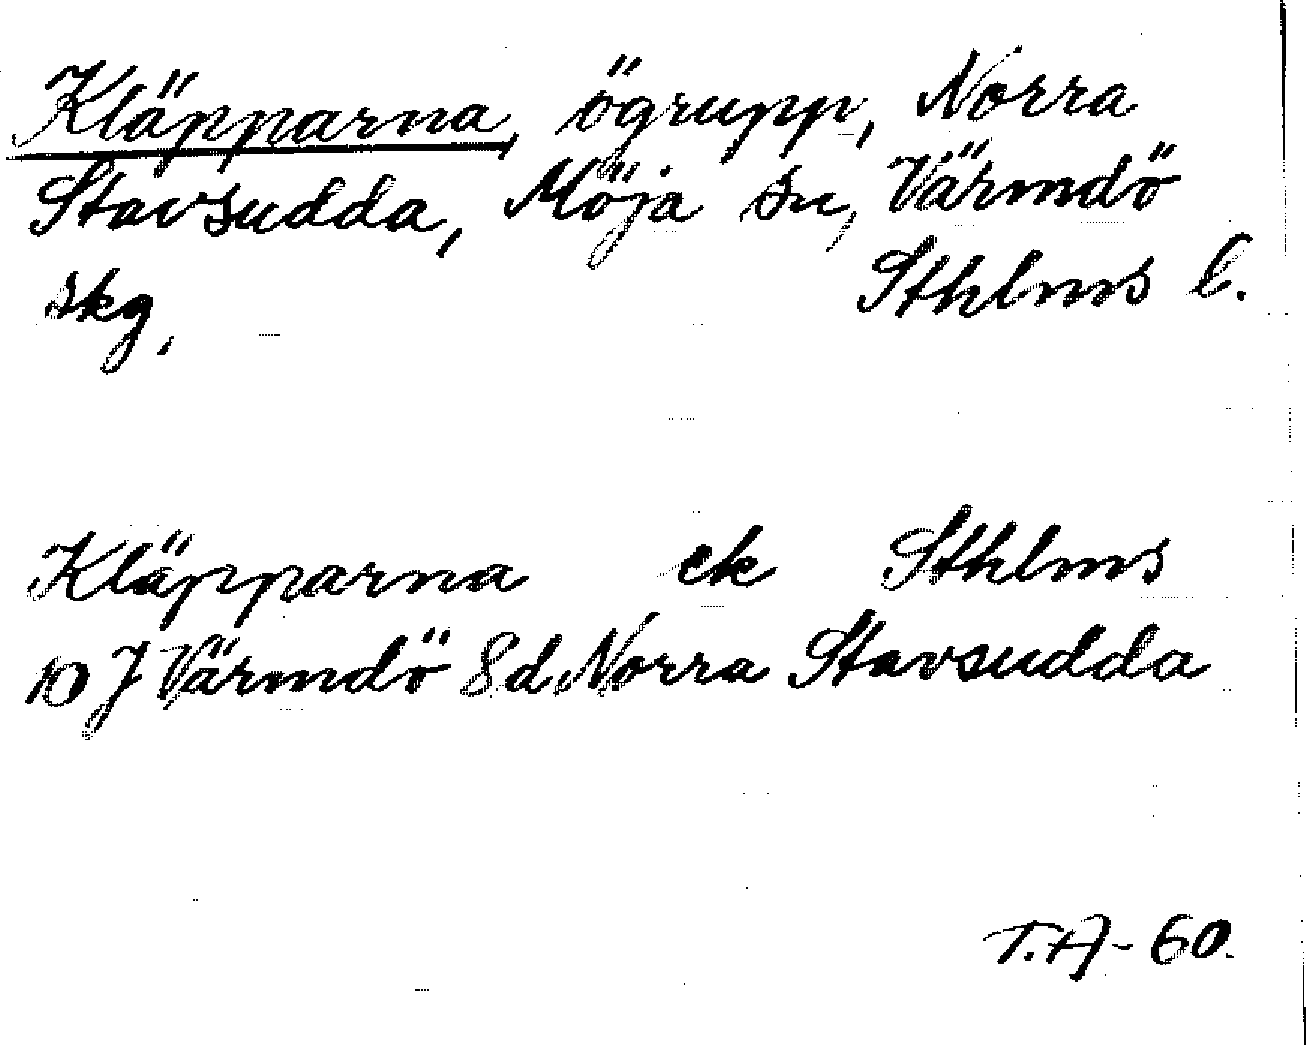 Kläpparna, ögrupp, Norra
Stavsudda, Möja sn, Värmdö
skg, Sthlms l.
Kläpparna ek Sthlms
10 J Värmdö Sd Norra Stavsudda
T.A-60.